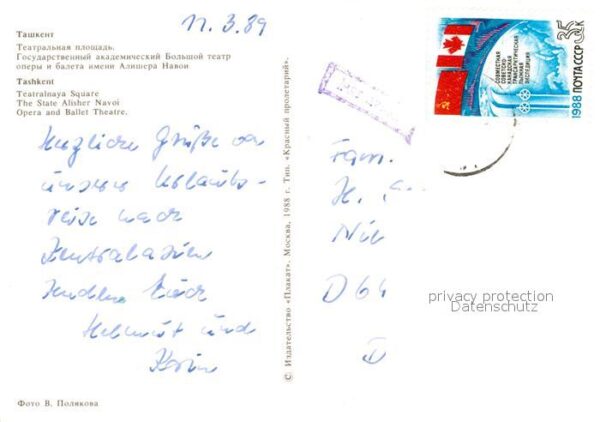 11.3.89
Ташкент
Театральная площадь.
Государственный академический Большой театр
оперы и балета имени Алишера Навои
Tashkent
Teatralnaya Square
The State Alisher Navoi
Opera and Ballet Theatre.
Herzliche Grüße von
unserer Urlaubs-
reise nach
Zentralasien
Helmut und
Karin
Фото В. Полякова
© Издательство «Плакат». Москва, 1988 г. Тип. «Красный пролетарий».
35 к
ПОЧТА СССР
1988
СОВМЕСТНАЯ
СОВЕТСКО-
КАНАДСКАЯ
ТРАНСАРКТИЧЕСКАЯ
ЛЫЖНАЯ
ЭКСПЕДИЦИЯ
Fam.
H.
D 64
D
privacy protection
Datenschutz